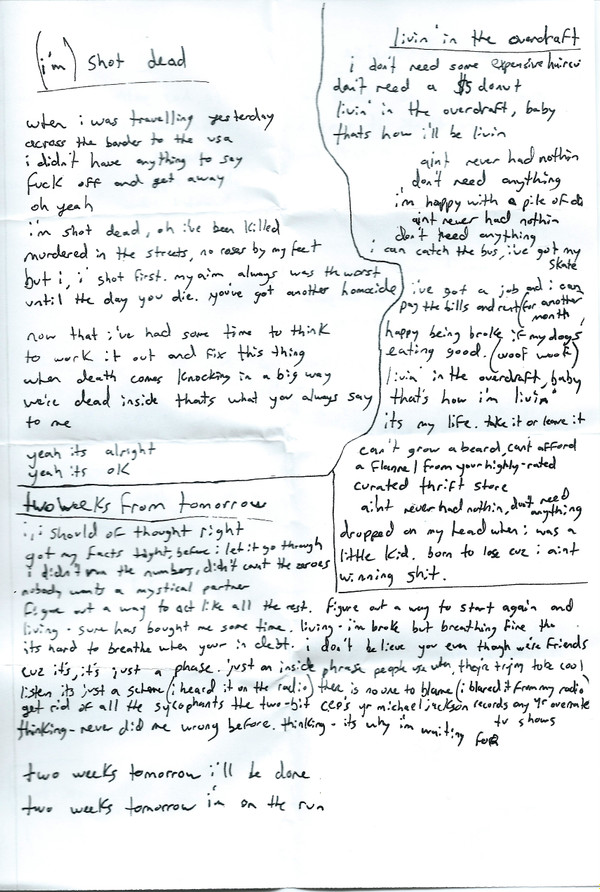 (i'm) shot dead
when i was travelling yesterday
across the border to the usa
i didn't have anything to say
fuck off and get away
oh yeah
i'm shot dead, oh i've been killed
murdered in the streets, no roses by my feet
but i, i shot first. my aim always was th worst
until the day you die. you've got another homocide
now that i've had some time to think
to work it out and fix this thing
when death comes knocking in a big way
we're dead inside thats what you always say
to me
yeah its alright
yeah its ok
livin' in the overdraft
i don't need some expensive haircu
don't need a $5 donut
livin' in the overdraft, baby
thats how i'll be livin
aint never had nothin
don't need anything
i'm happy with a pile of
aint never had nothin
don't need anything
i can catch the bus, i've got my
skate
i've got a job and i can
pay the bills and rent (for another
month)
happy being broke if my dogs
eating good. (woof woof)
livin' in the overdraft, baby
that's how i'm livin'
its my life. take it or leave it
can't grow a beard, cant afford
a flannel from your highly-rated
curated thrift store
aint never had nothin, dont need
anything
dropped on my head when i was a
little kid. born to lose cuz i aint
winning shit.
two weeks from tomorrow
i, i should of thought right
got my facts tight, before i let it go through
i didn't run the numbers, didn't count the zeroes
nobody wants a mystical partner
figure out a way to act like all the rest. figure out a way to start again and
living - sure has bought me some time. living - i'm broke but breathing fine tho
its hard to breathe when your in debt. i don't believe you even though we're friends
cuz it's, it's just a phase. just an inside phrase people use when they're trying to be cool
listen its just a scheme (i heard it on the radio) there is no one to blame (i blared it from my radio)
get rid of all the sycophants the two-bit ceo's yr michael jackson records any yr overrate
tv shows
thinking - never did me wrong before. thinking - its why i'm waiting for
two weeks tomorrow i'll be done
two weeks tomorrow i'm on the run